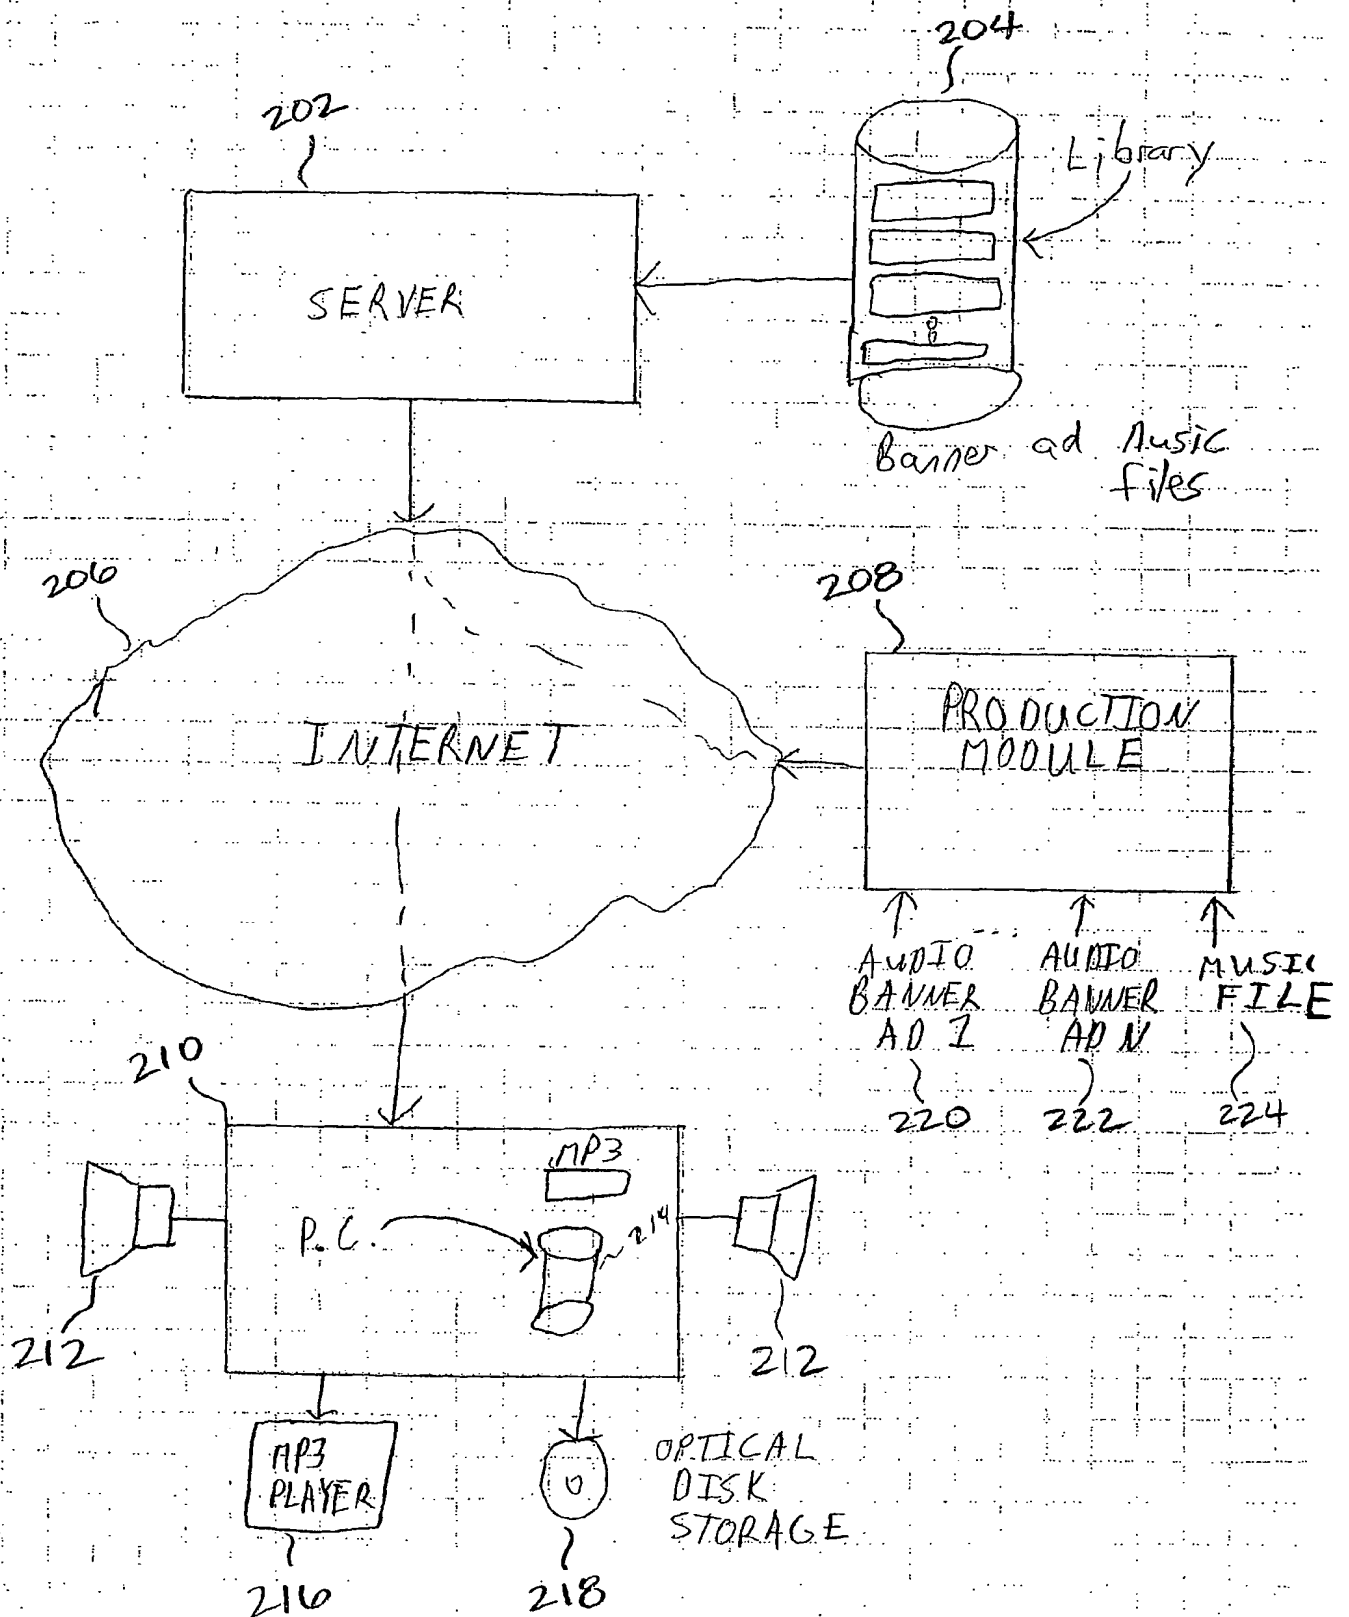 204
202
Library
SERVER
Banner ad Music
files
206
208
PRODUCTION
MODULE
INTERNET
AUDIO
BANNER
AD 1
...
AUDIO
BANNER
AD N
MUSIC
FILE
220
222
224
210
MP3
P.C.
214
212
212
MP3
PLAYER
OPTICAL
DISK
STORAGE
216
218